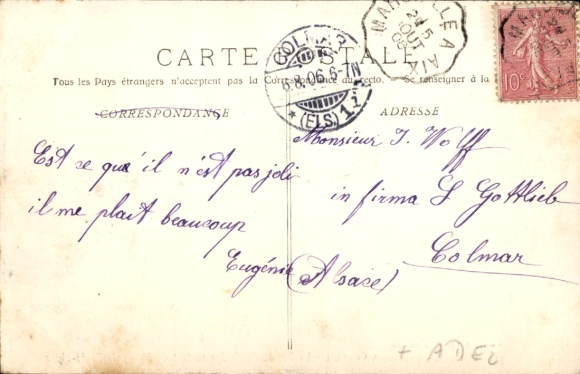 CARTE POSTALE
Tous les Pays étrangers n'acceptent pas la Correspondance au recto. Se renseigner à la
CORRESPONDANCE
ADRESSE
Est ce qu'il n'est pas joli
il me plait beaucoup
Eugénie
Monsieur J. Wolff
in firma L Gottlieb
Colmar
(Alsace)
COLMAR
8.8.06.6-7N
* (ELS.) 1 i
MARSEILLE A AIX
2E 5
AOUT
06
10c
+ ADEL